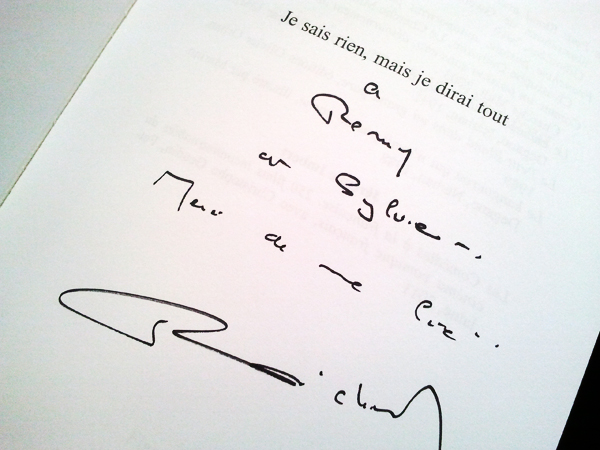 Je sais rien, mais je dirai tout
a
Remy
et Sylvie...
Merci de me lire...
Richard